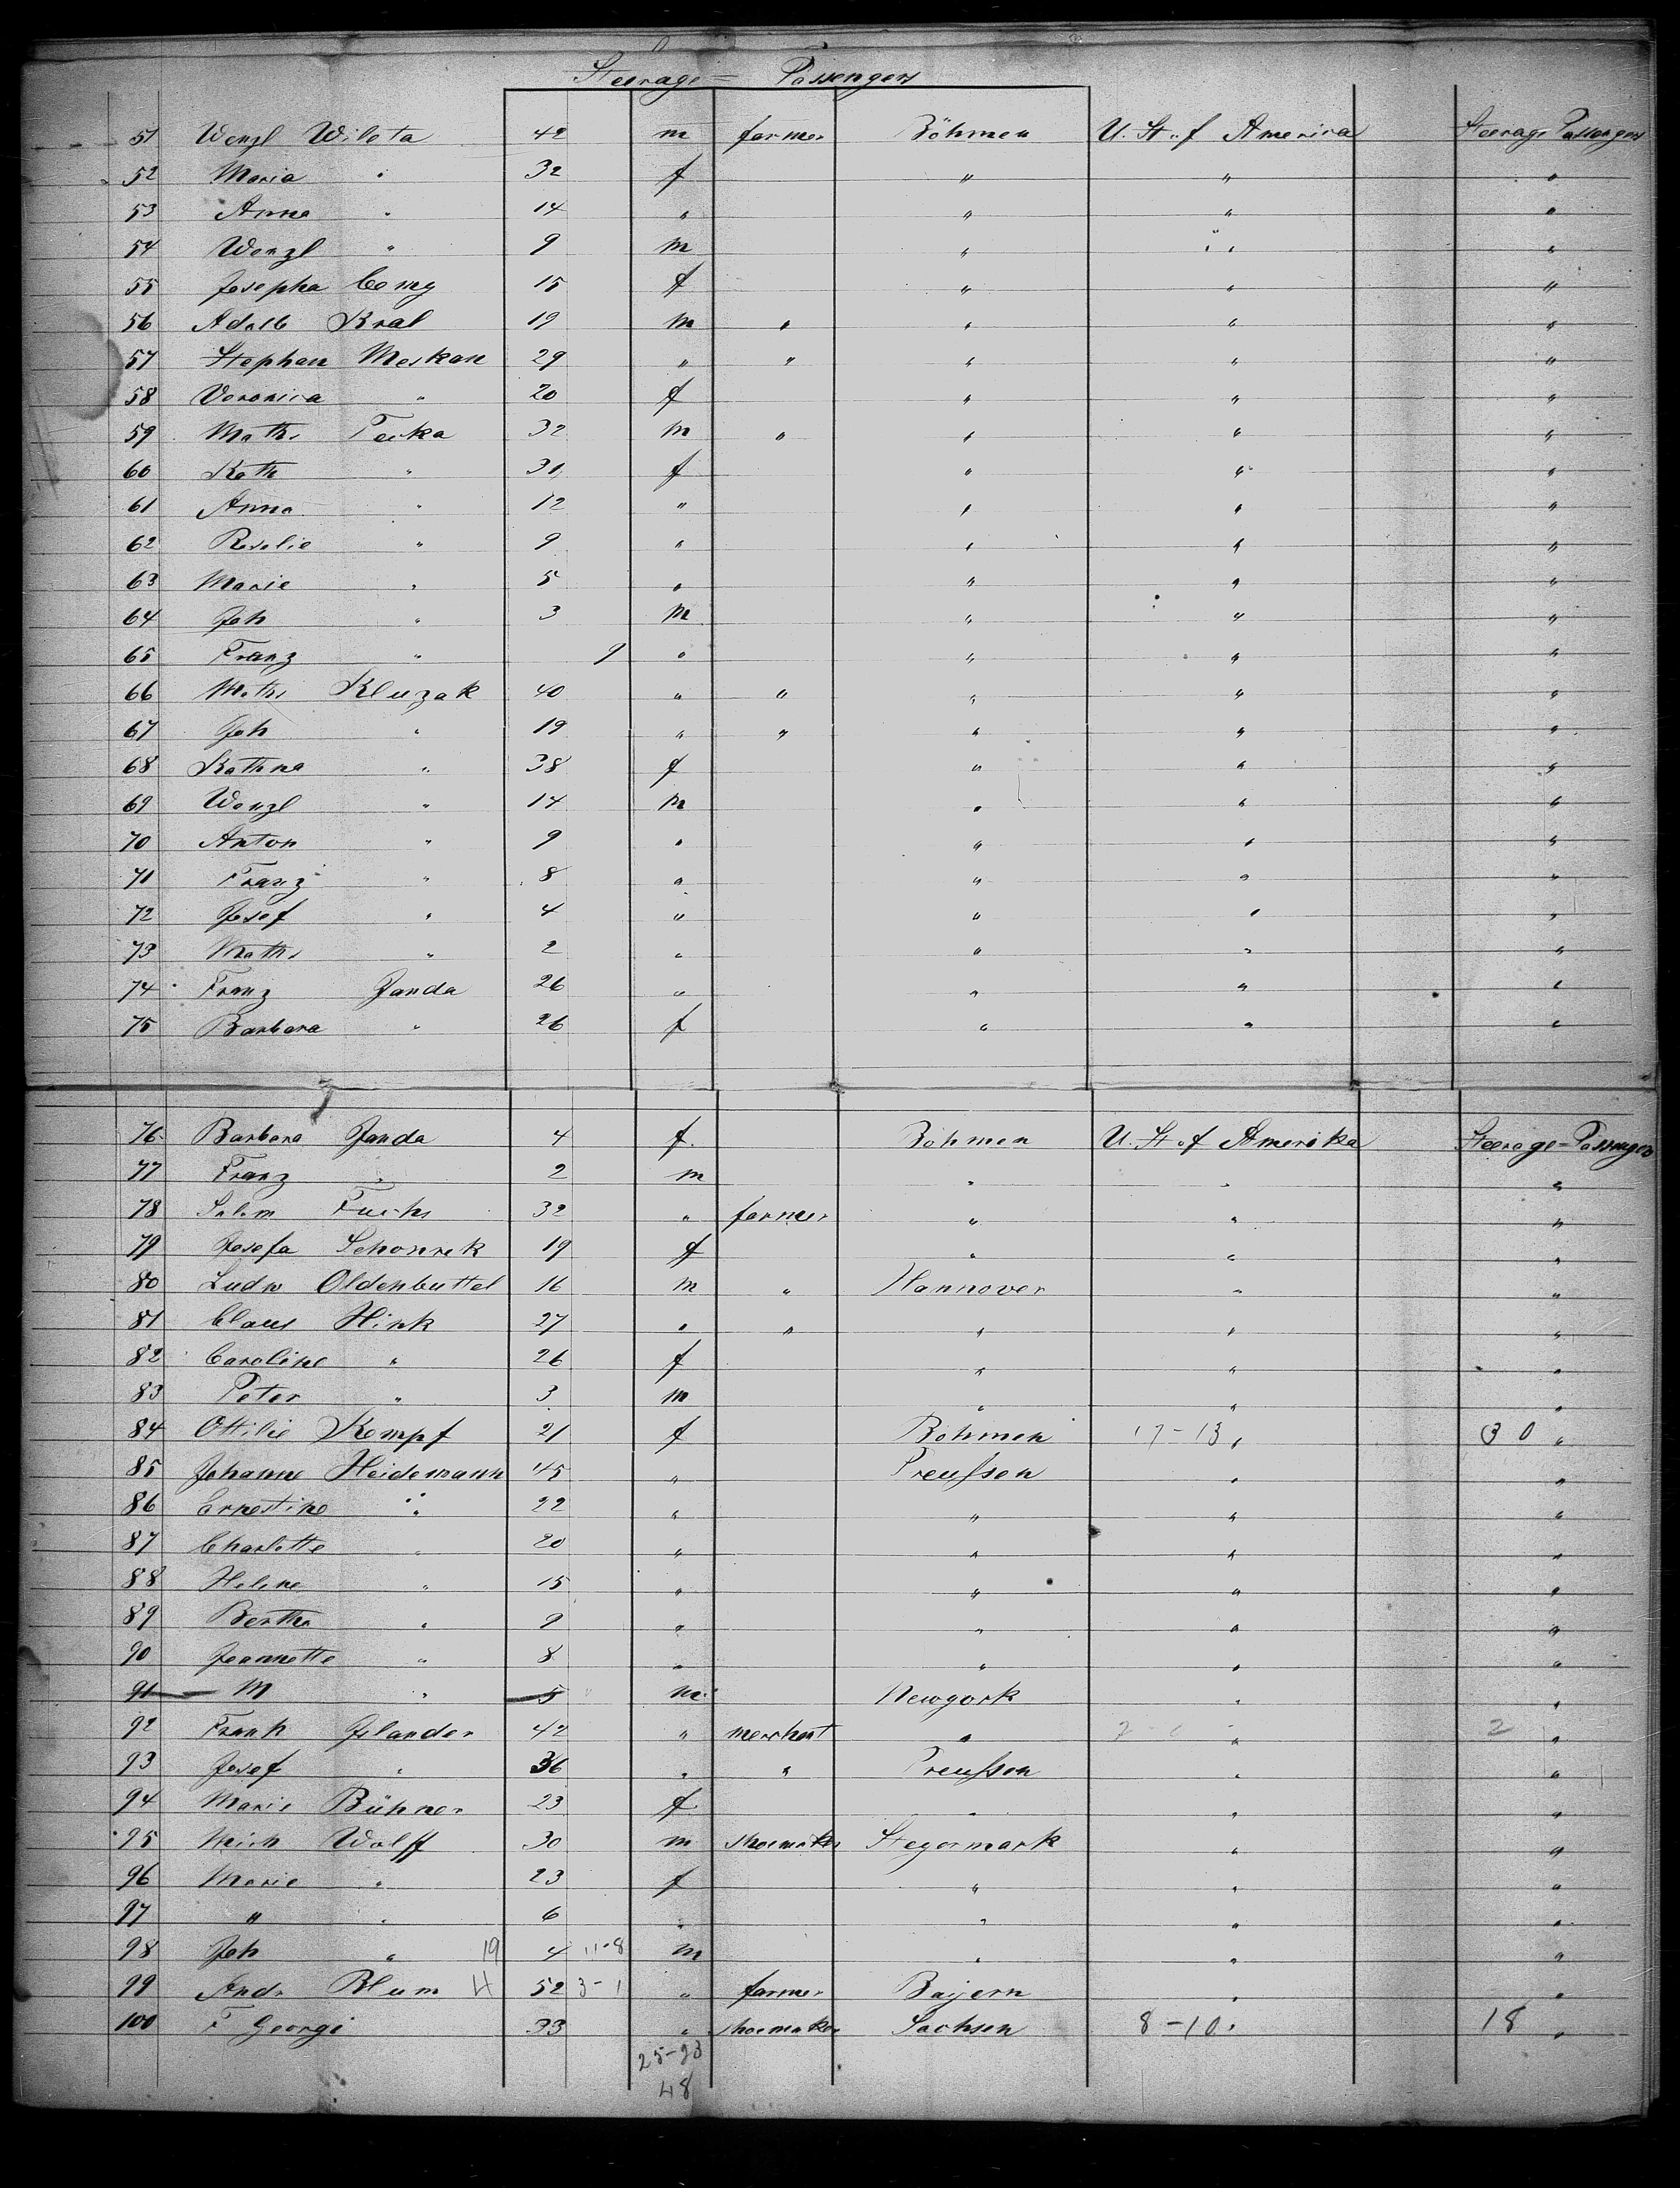 Steerage = Passengers
51 Wenzl Wilota 42 m farmer Böhmen U. St. of America Steerage Passengers
52 Maria " 32 f " " "
53 Anna " 14 " " " "
54 Wenzl " 9 m " " "
55 Josepha Comy 15 f " " "
56 Adalb Kral 19 m " " " "
57 Stephan Meskan 29 " " " " "
58 Veronica " 20 f " " "
59 Maths Tecka 32 m " " " "
60 Kath " 31 f " " "
61 Anna " 12 " " " "
62 Rosalie " 9 " " " "
63 Marie " 5 " " " "
64 Joh " 3 m " " "
65 Franz " 9 " " " "
66 Maths Kluzak 40 " " " " "
67 Joh " 19 " " " " "
68 Kathna " 38 f " " "
69 Wenzl " 14 m " " "
70 Anton " 9 " " " "
71 Franz " 8 " " " "
72 Josef " 4 " " " "
73 Maths " 2 " " " "
74 Franz Janda 26 " " " "
75 Barbara " 26 f " " "
76 Barbara Janda 4 f Böhmen U. St. of Amerika Steerage = Passengers
77 Franz " 2 m " " "
78 Salom Fuchs 32 " farmer " " "
79 Josefa Schonrek 19 f " " "
80 Ludw Oldenbuttel 16 m " Hannover " "
81 Claus Hink 27 " " " " "
82 Caroline " 26 f " " "
83 Peter " 3 m " " "
84 Ottilie Kempf 21 f Böhmen 17-13 " 30 "
85 Johanne Heidemann 45 " Preussen " "
86 Ernestine " 22 " " " "
87 Charlotte " 20 " " " "
88 Helene " 15 " " " "
89 Bertha " 9 " " " "
90 Jeannette " 8 " " " "
91 M " 5 m Newyork " "
92 Frank Jslander 42 " merchant " " 2 "
93 Josef " 36 " " Preussen " "
94 Marie Bühner 23 f " " "
95 Mich Wolff 30 m shoemaker Steyermark " "
96 Marie " 23 f " " "
97 " " 6 " " " "
98 Joh " 19 4 11-8 m " " "
99 Andr Blum 4 52 3-1 " farmer Bayern " "
100 F Georgi 33 " shoemaker Sachsen 8-10 " 18 "
25-23
48